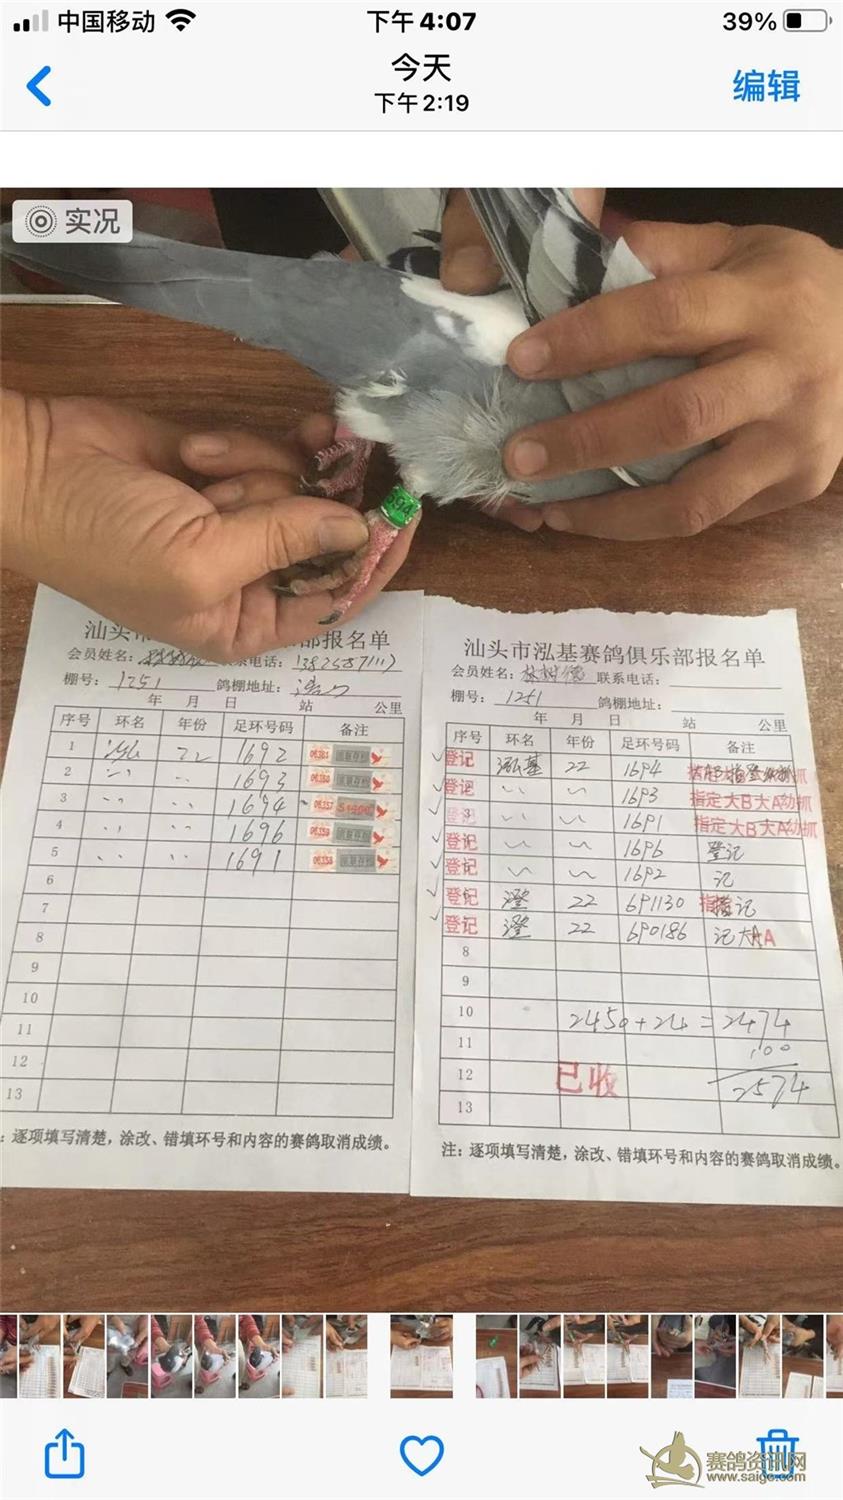 中国移动 下午 4:07 39%
今天
下午 2:19
编辑
实况
694
汕头市 部报名单
会员姓名: 联系电话:
棚号: 1251 鸽棚地址:
年 月 日 站 公里
序号 环名 年份 足环号码 备注
1 22 1692 06361
2 〃 〃 1693 06360
3 〃 〃 1694 06357
4 〃 〃 1696 06358
5 〃 〃 1691 06359
6
7
8
9
10
11
12
13
:逐项填写清楚,涂改、错填环号和内容的赛鸽取消成绩。
汕头市泓基赛鸽俱乐部报名单
会员姓名: 林树德 联系电话:
棚号: 1251 鸽棚地址:
年 月 日 站 公里
序号 环名 年份 足环号码 备注
登记 泓基 22 1694
登记 〃 〃 1693 指定大B大A幼抓
登记 〃 〃 1691 指定大B大A幼抓
登记 〃 〃 1696 登记
登记 〃 〃 1692 记
登记 澄 22 691130 记
登记 澄 22 690186 记大A
8
9
10 2450+24=2474
11 100
12 已收 2574
13
注:逐项填写清楚,涂改、错填环号和内容的赛鸽取消成绩。
赛鸽资讯网
www.saige.com